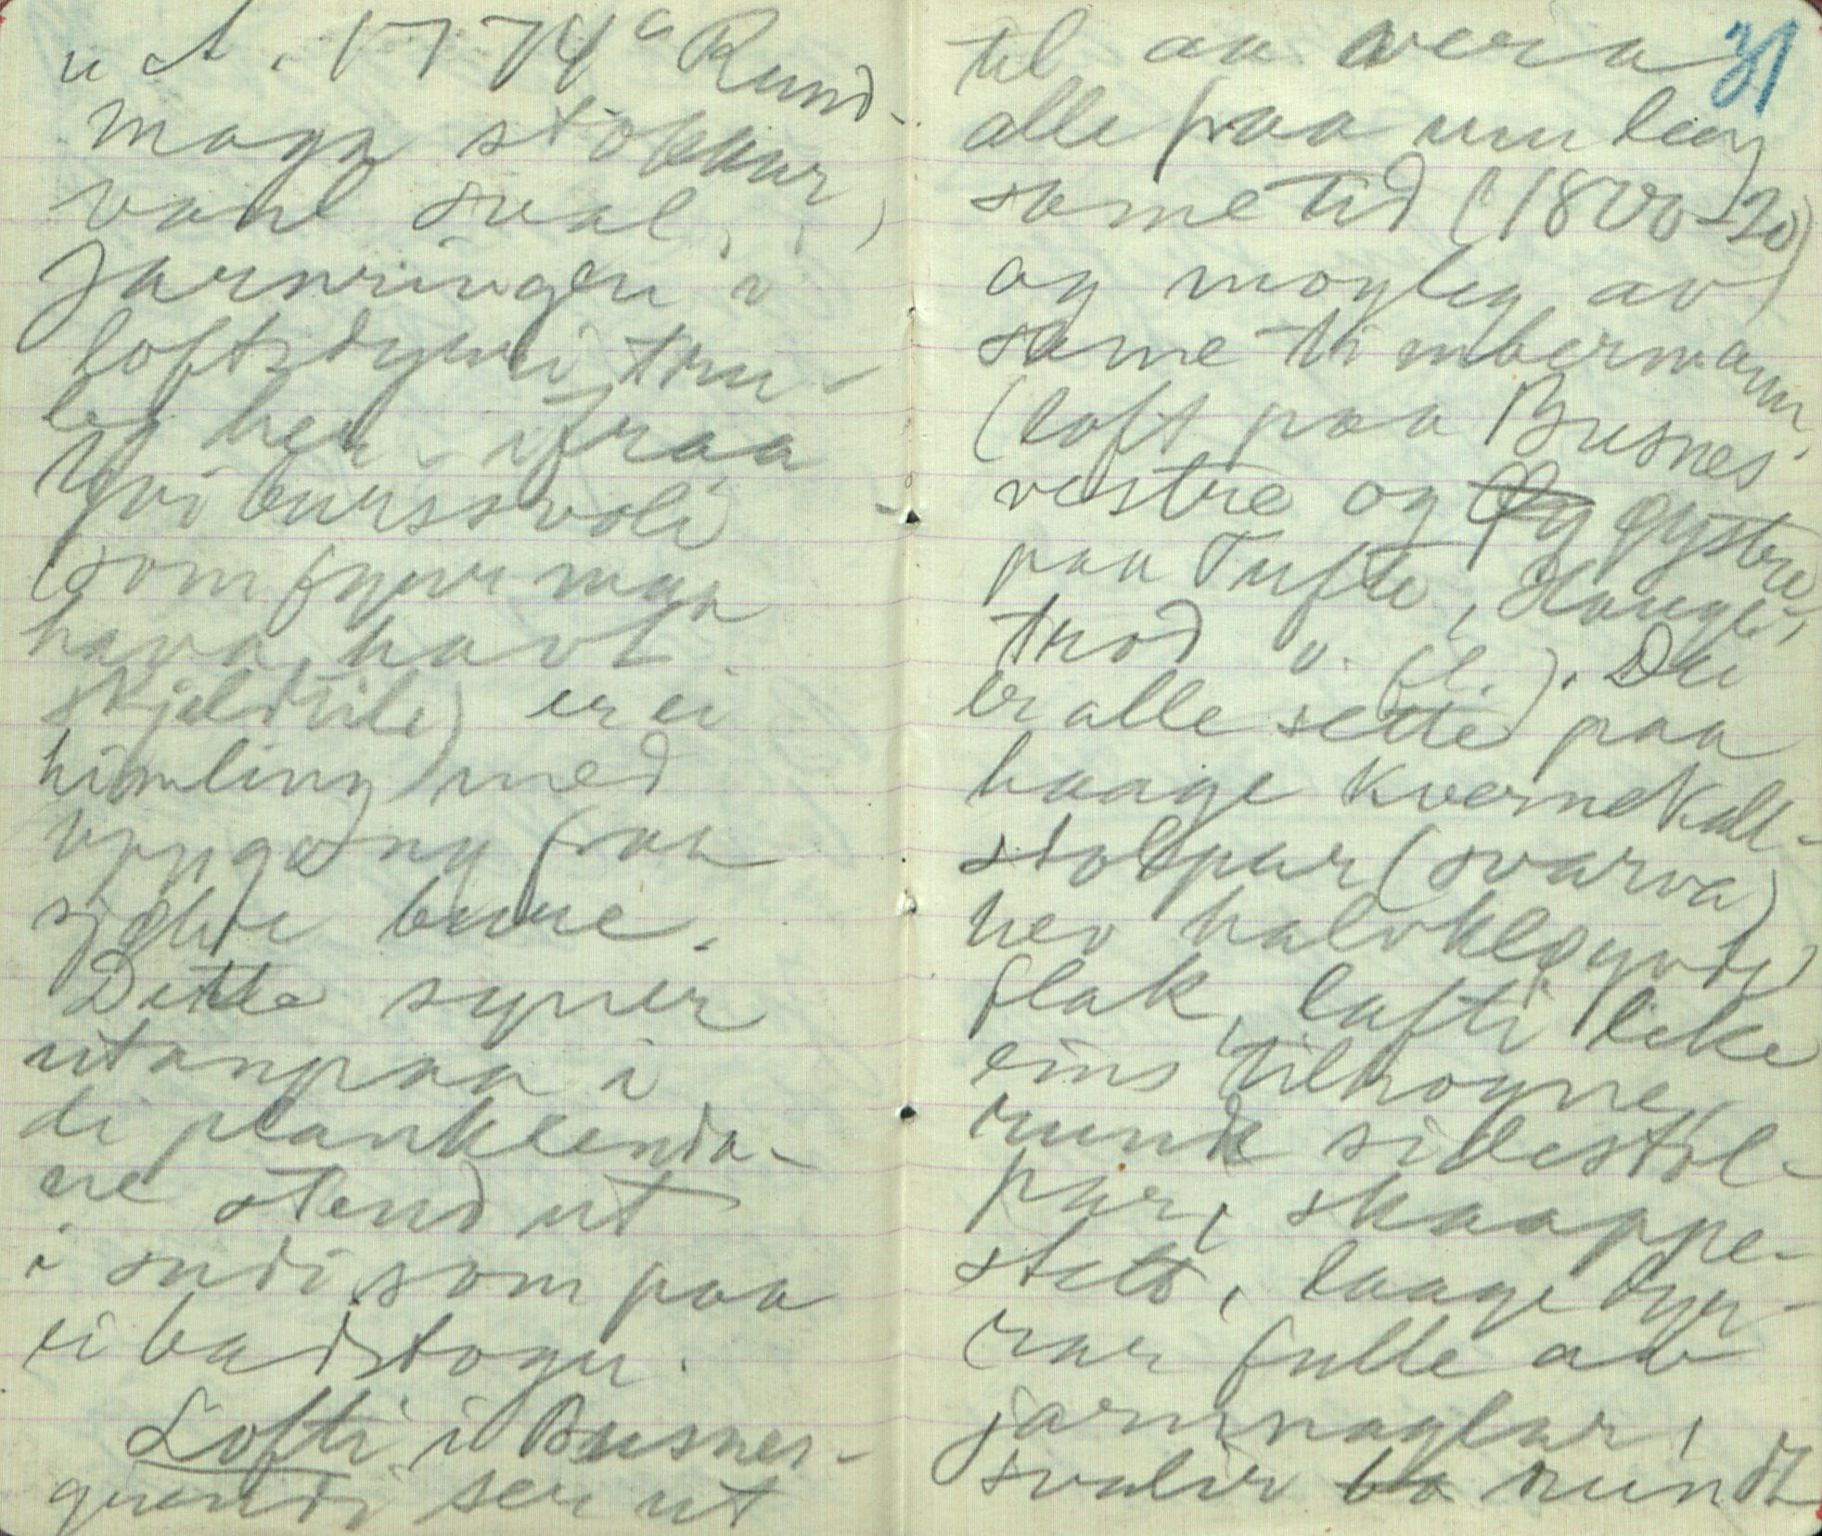 u A. 1774" Rund-
maga stokkar,
vanl sval.
Jarnringen i
loftsdyri tru-
leg her ifraa
Yvi bursvoli
(som fyrr maa
hava havt
skjeldtile) er ei
himling med
uppgang fraa
sjølve bure.
Dette syner
utanpaa i
di plankeenda-
ne stend ut
i sudi som paa
ei badstogu.
Lofti i Busnes-
grendi ser ut
31
til aa vera
alle fraa um lag
same tid (1800-20)
og mogleg av
same timbermann.
(loft paa Busnes
vestre og øystre
paa Tufte, Hauge-
trod o. fl.). Dei
er alle sette paa
haage kvernekall-
stolpar (svarva)
hev halvkløyvde
flak, lafti like
eins tilhogne,
runde sidestol-
par, skaappe-
stett, laage dyr-
rar fulle av
jarnnaglar,
svalir rundt